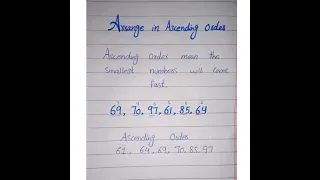 Arrange in Ascending Order
Ascending Order mean the
smallest numbers will come
first.
69, 70, 97, 61, 85, 64
Ascending Order
61, 64, 69, 70, 85, 97